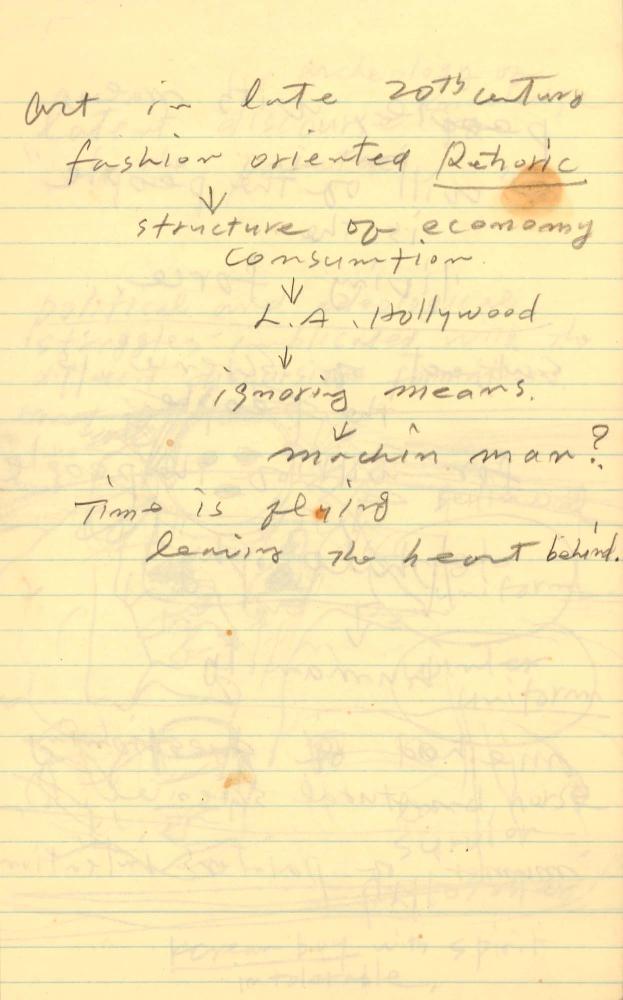 art in late 20th century
fashion oriented Rethoric
↓
structure of economy
consumtion.
↓
L.A. Hollywood
↓
ignoring means.
↓
machin man?
Time is flying
leaving the heart behind.